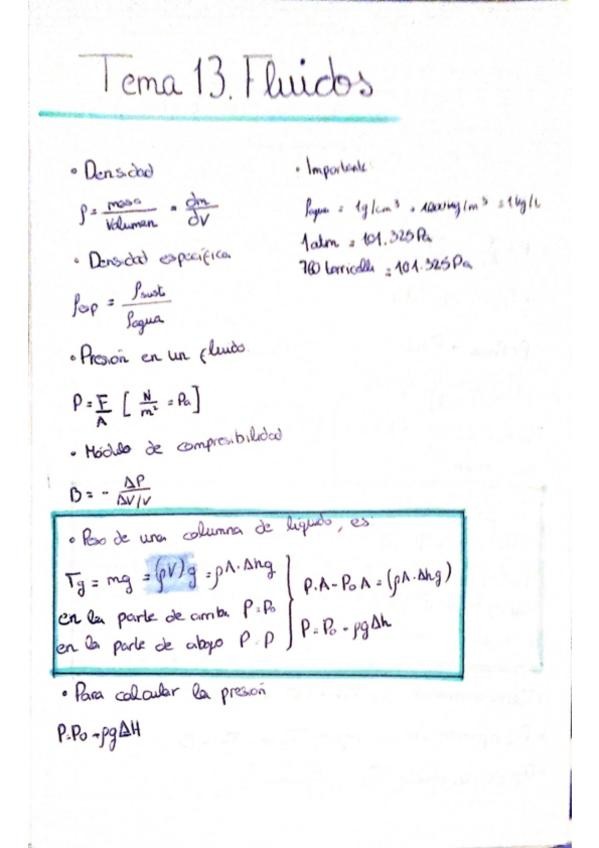 Tema 13. Fluidos
• Densidad
ρ = masa / Volumen = dm / dV
• Densidad específica
ρesp = ρsust / ρagua
• Presión en un fluido
P = F / A [ N / m² = Pa ]
• Módulo de compresibilidad
B = - ΔP / ΔV/V
• Importante
ρagua = 1g/cm³ = 1000kg/m³ = 1kg/L
1atm = 101.325Pa
760 torricellis = 101.325Pa
• Peso de una columna de líquido, es
= mg = (ρV)g = ρA·Δhg
en la parte de arriba P=P₀
en la parte de abajo P=P
P·A - P₀A = (ρA·Δhg)
P=P₀ - ρgΔh
• Para calcular la presión
P=P₀ + ρgΔH